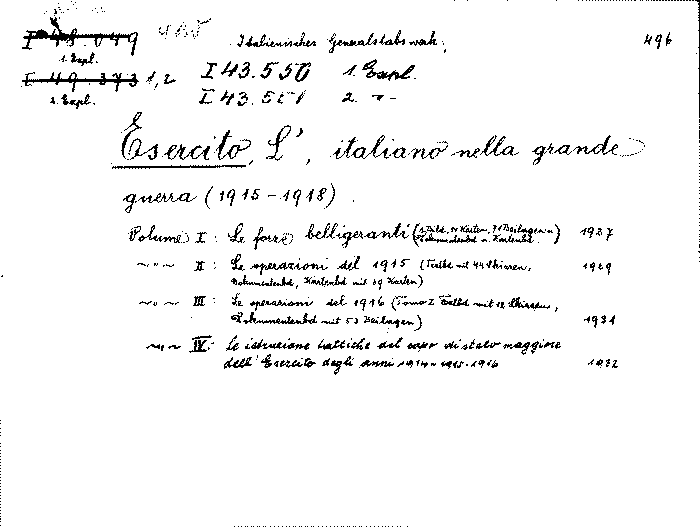 I 48.049
1. Expl.
I 49.373 1,2
2. Expl.
Italienisches Generalstabswerk,
496
I 43.550 1. Expl.
I 43.551 2. - " -
Esercito, L', italiano nella grande
guerra (1915-1918).
Volume I: Le forze belligeranti ( 1927
Dokumentenbd u. Kartenbd.
II: Le operazioni del 1915 (Textbd mit 44 Skizzen, 1929
Dokumentenbd, Kartenbd mit 69 Karten)
III: Le operazioni del 1916 (Tomo I Textbd mit 12 Skizzen,
Dokumentenbd mit 53 Beilagen) 1931
IV: Le istruzione tattiche del capo di stato maggiore
dell' Esercito degli anni 1914-1915-1916 1932